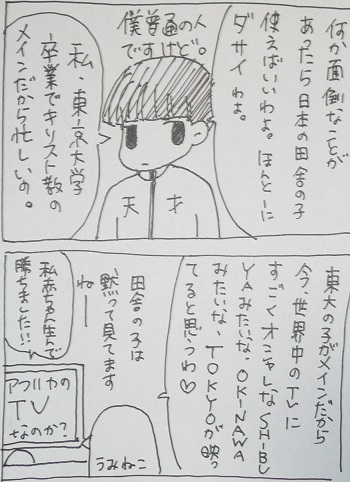 何か面倒なことが
あったら日本の田舎の子
使えばいいわよ。ほんとーに
ダサイわよ。
僕普通の人
ですけど。
私、東京大学
卒業でキリスト教の
メインだから忙しいの。
天才
東大の子がメインだから
今、世界中のTVに
すごくオシャレなSHIBU
YAみたいな、OKINAWA
みたいな、TOKYOが映っ
てると思うわ♡
田舎の子は
黙って見てます
ねー
私赤ちゃん生んで
勝ちました!!
アフリカの
TV
なのか?
うみねこ